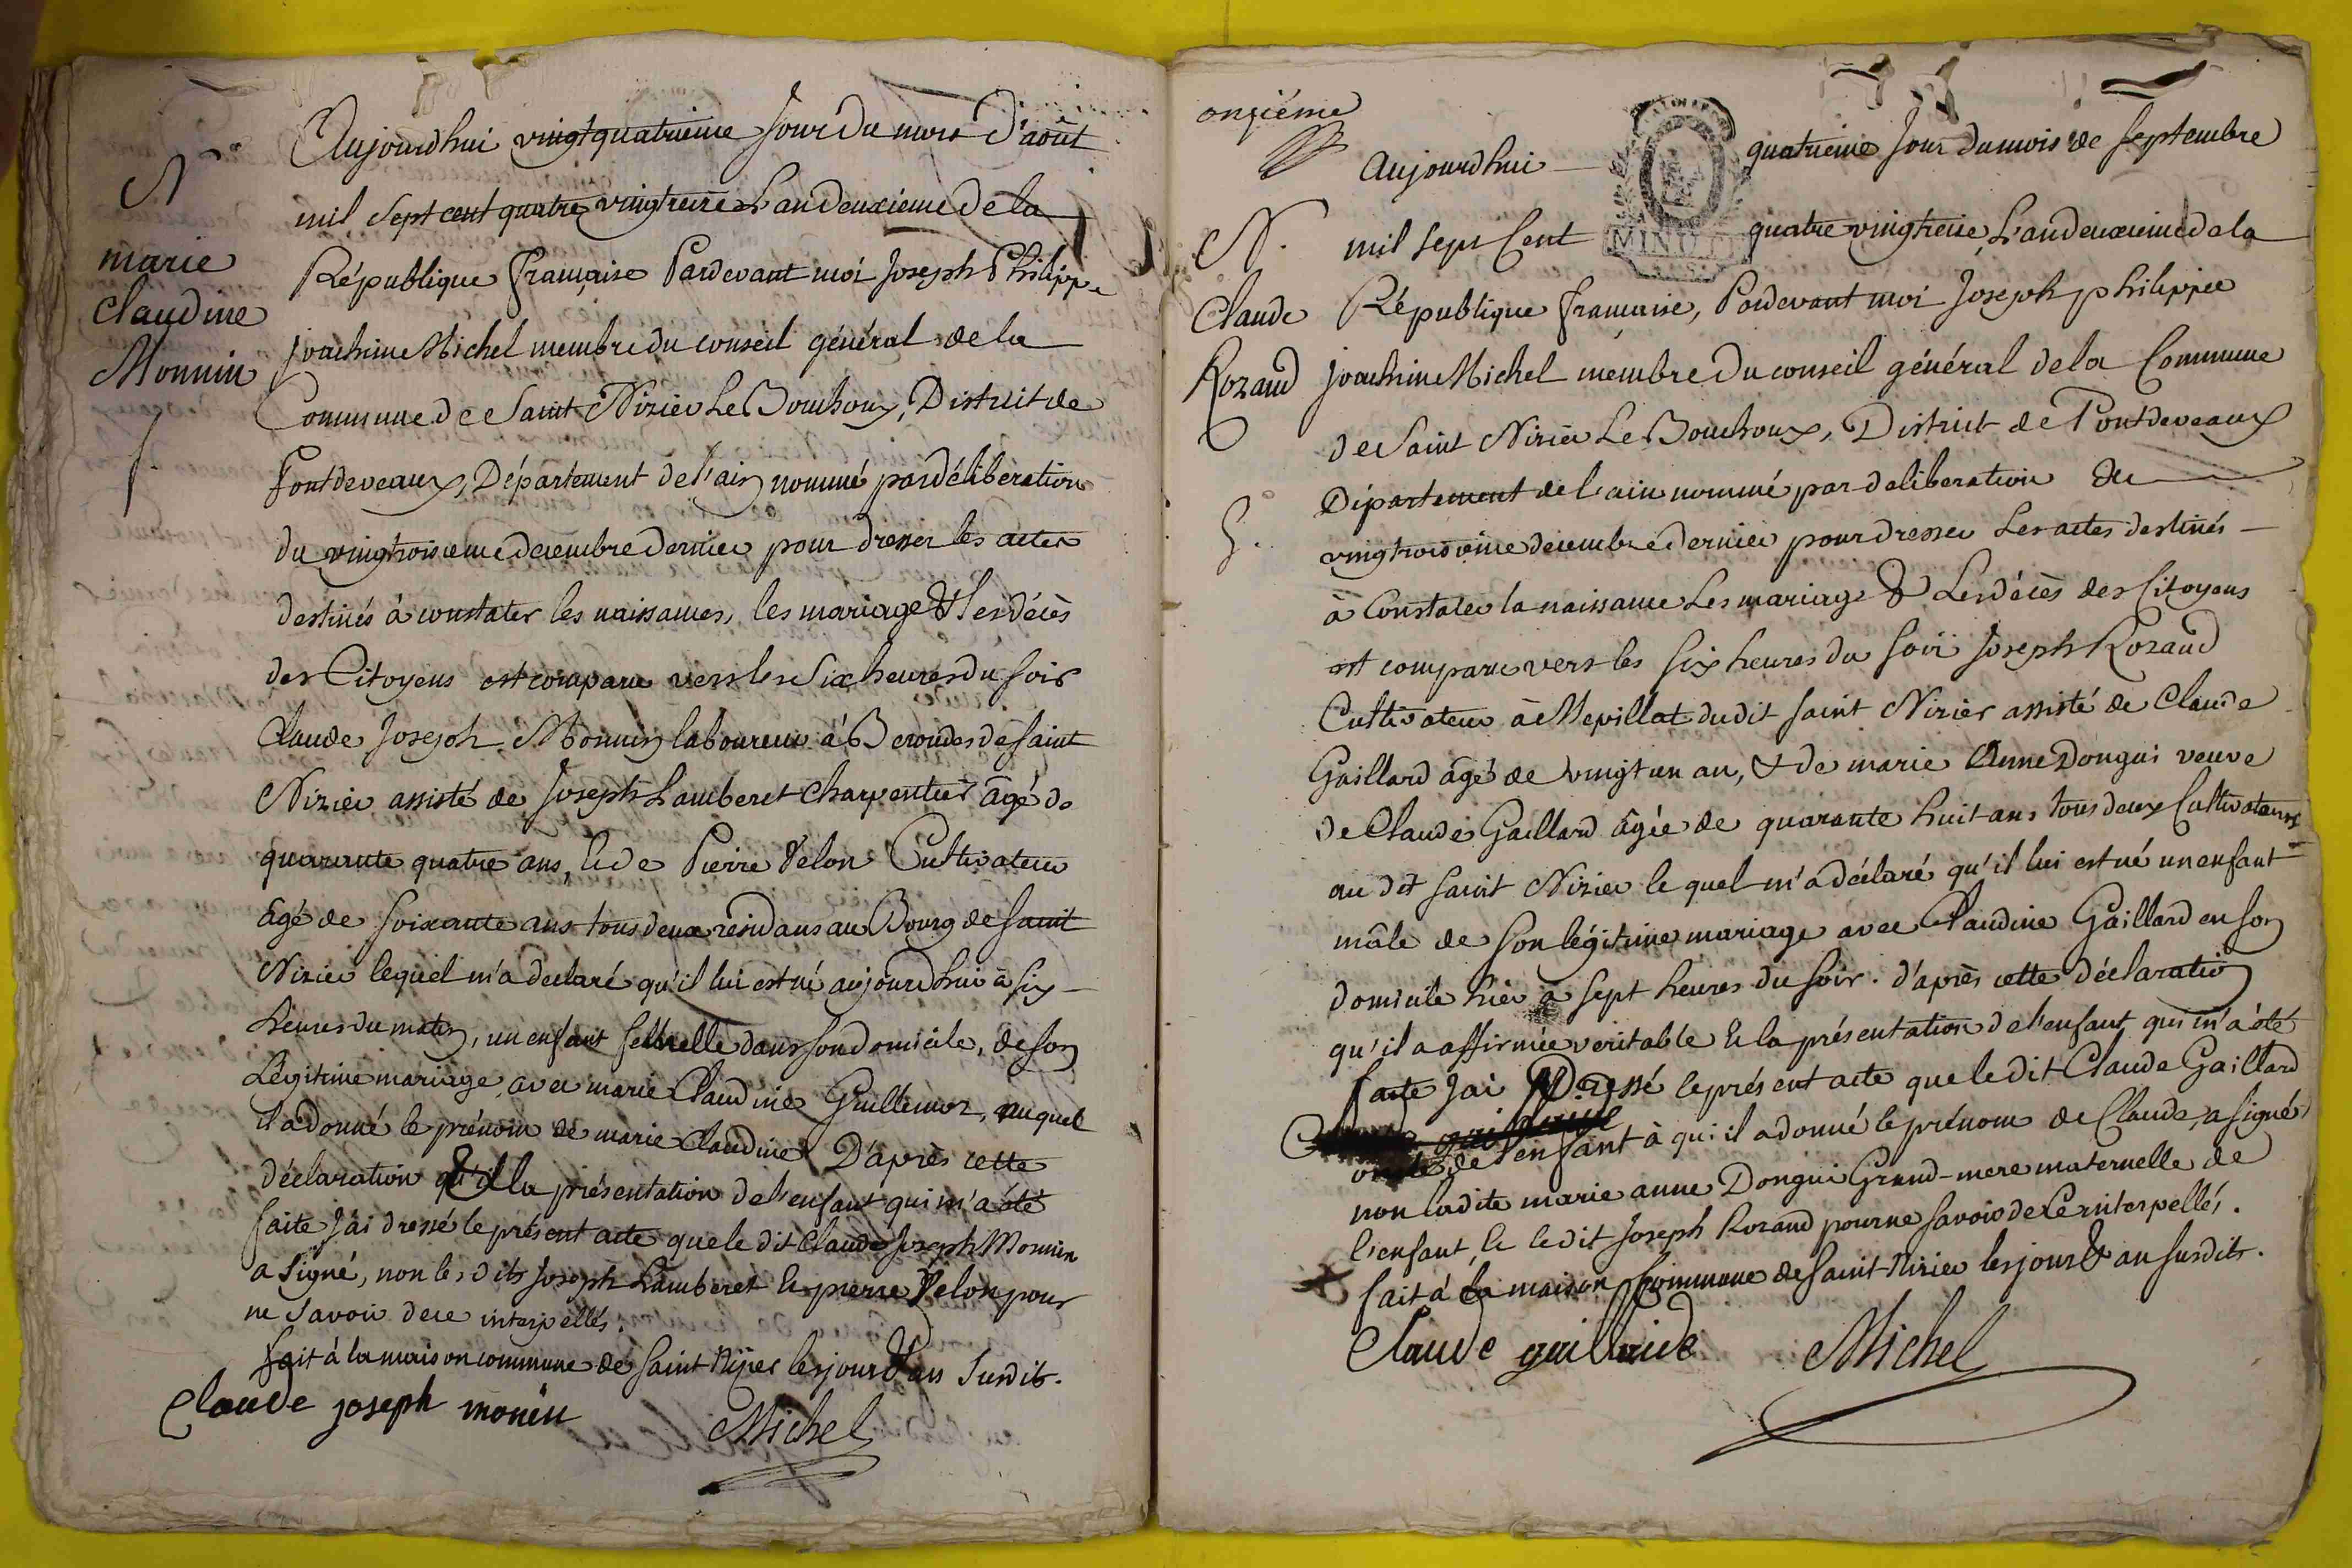 N.
marie
Claudine
Monnin
f.
Aujourdhui vingtquatrieme Jour du mois d'août
mil sept cent quatre vingtreize L'an deuxième de la
République française Pardevant moi Joseph Philippe
joachim Michel membre du conseil général de la
Commune de Saint Nizier Le Bouchoux, District de
Pontdevaux, Département de l'ain nommé par délibération
du vingtroisieme decembre dernier pour dresser les actes
destinés à constater les naissances, les mariage & les décès
des Citoyens est comparu vers les Six heures du soir
Claude Joseph Monnin laboureur à Beroudes de saint
Nizier assisté de Joseph Lamberet charpentier âgé de
quarante quatre ans, & de Pierre Velon Cultivateur
âgé de soixante ans tous deux residans au Bourg de saint
Nizier lequel m'a declaré qu'il lui est né aujourdhui à six
heures du matin, un enfant femelle dans son domicile, de son
Légitime mariage avec marie Claudine Guillemoz, auquel
il a donné le prénom de marie Claudine D'après cette
déclaration & la présentation de l'enfant qui m'a été
faite j'ai dressé le présent acte que le dit Claude Joseph Monnin
a Signé, non les dits Joseph Lamberet & pierre Velon pour
ne savoir de ce interpellés.
fait à la maison commune de saint Nizier les jour & an susdits.
Claude joseph monin
Michel
onzième
N.
Claude
Rozand
G.
Aujourdhui quatrieme Jour du mois de septembre
MINUTE
mil sept Cent quatre vingtreize, L'an deuxieme de la
République française, Pardevant moi Joseph philippe
joachim Michel membre du conseil général de la Commune
de Saint Nizier Le Bouchoux, District de Pontdeveaux
Département de l'ain nommé par deliberation du
vingtroisieme decembre dernier pour dresser Les actes destinés
à Constater la naissance Les mariage & Les décès des Citoyens
est comparu vers les six heures du soir Joseph Rozand
Cultivateur à Mepillat dudit saint Nizier assisté de Claude
Gaillard âgé de vingt un an, & de marie Anne Dongui veuve
de Claude Gaillard âgée de quarante huit ans tous deux Cultivateurs
au dit saint Nizier le quel m'a déclaré qu'il lui est né un enfant
mâle de son légitime mariage avec Claudine Gaillard en son
domicile hier à sept heures du soir. d'après cette déclaration
qu'il a affirmée veritable & la présentation de l'enfant qui m'a été
faite Jai Dressé le présent acte que le dit Claude Gaillard
oncle de l'enfant à qui il a donné le prénom de Claude, a signé
non ladite marie anne Dongui Grand-mere maternelle de
l'enfant, & le dit Joseph Rozand pour ne savoir de Ce interpellés.
fait à la maison Commune de saint-Nizier les jour & an susdits.
Claude gaillaide
Michel